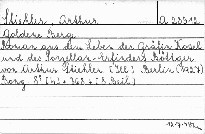 Stiehler, Arthur A 23312
Goldene Berg.
Roman aus dem Leben der Gräfin Kosel
und des Porzellan-Erfinders Böttger
von Arthur Stiehler [Ill.] Berlin (1927)
Borg. 8° [4] + 368 + [3 Beil.]